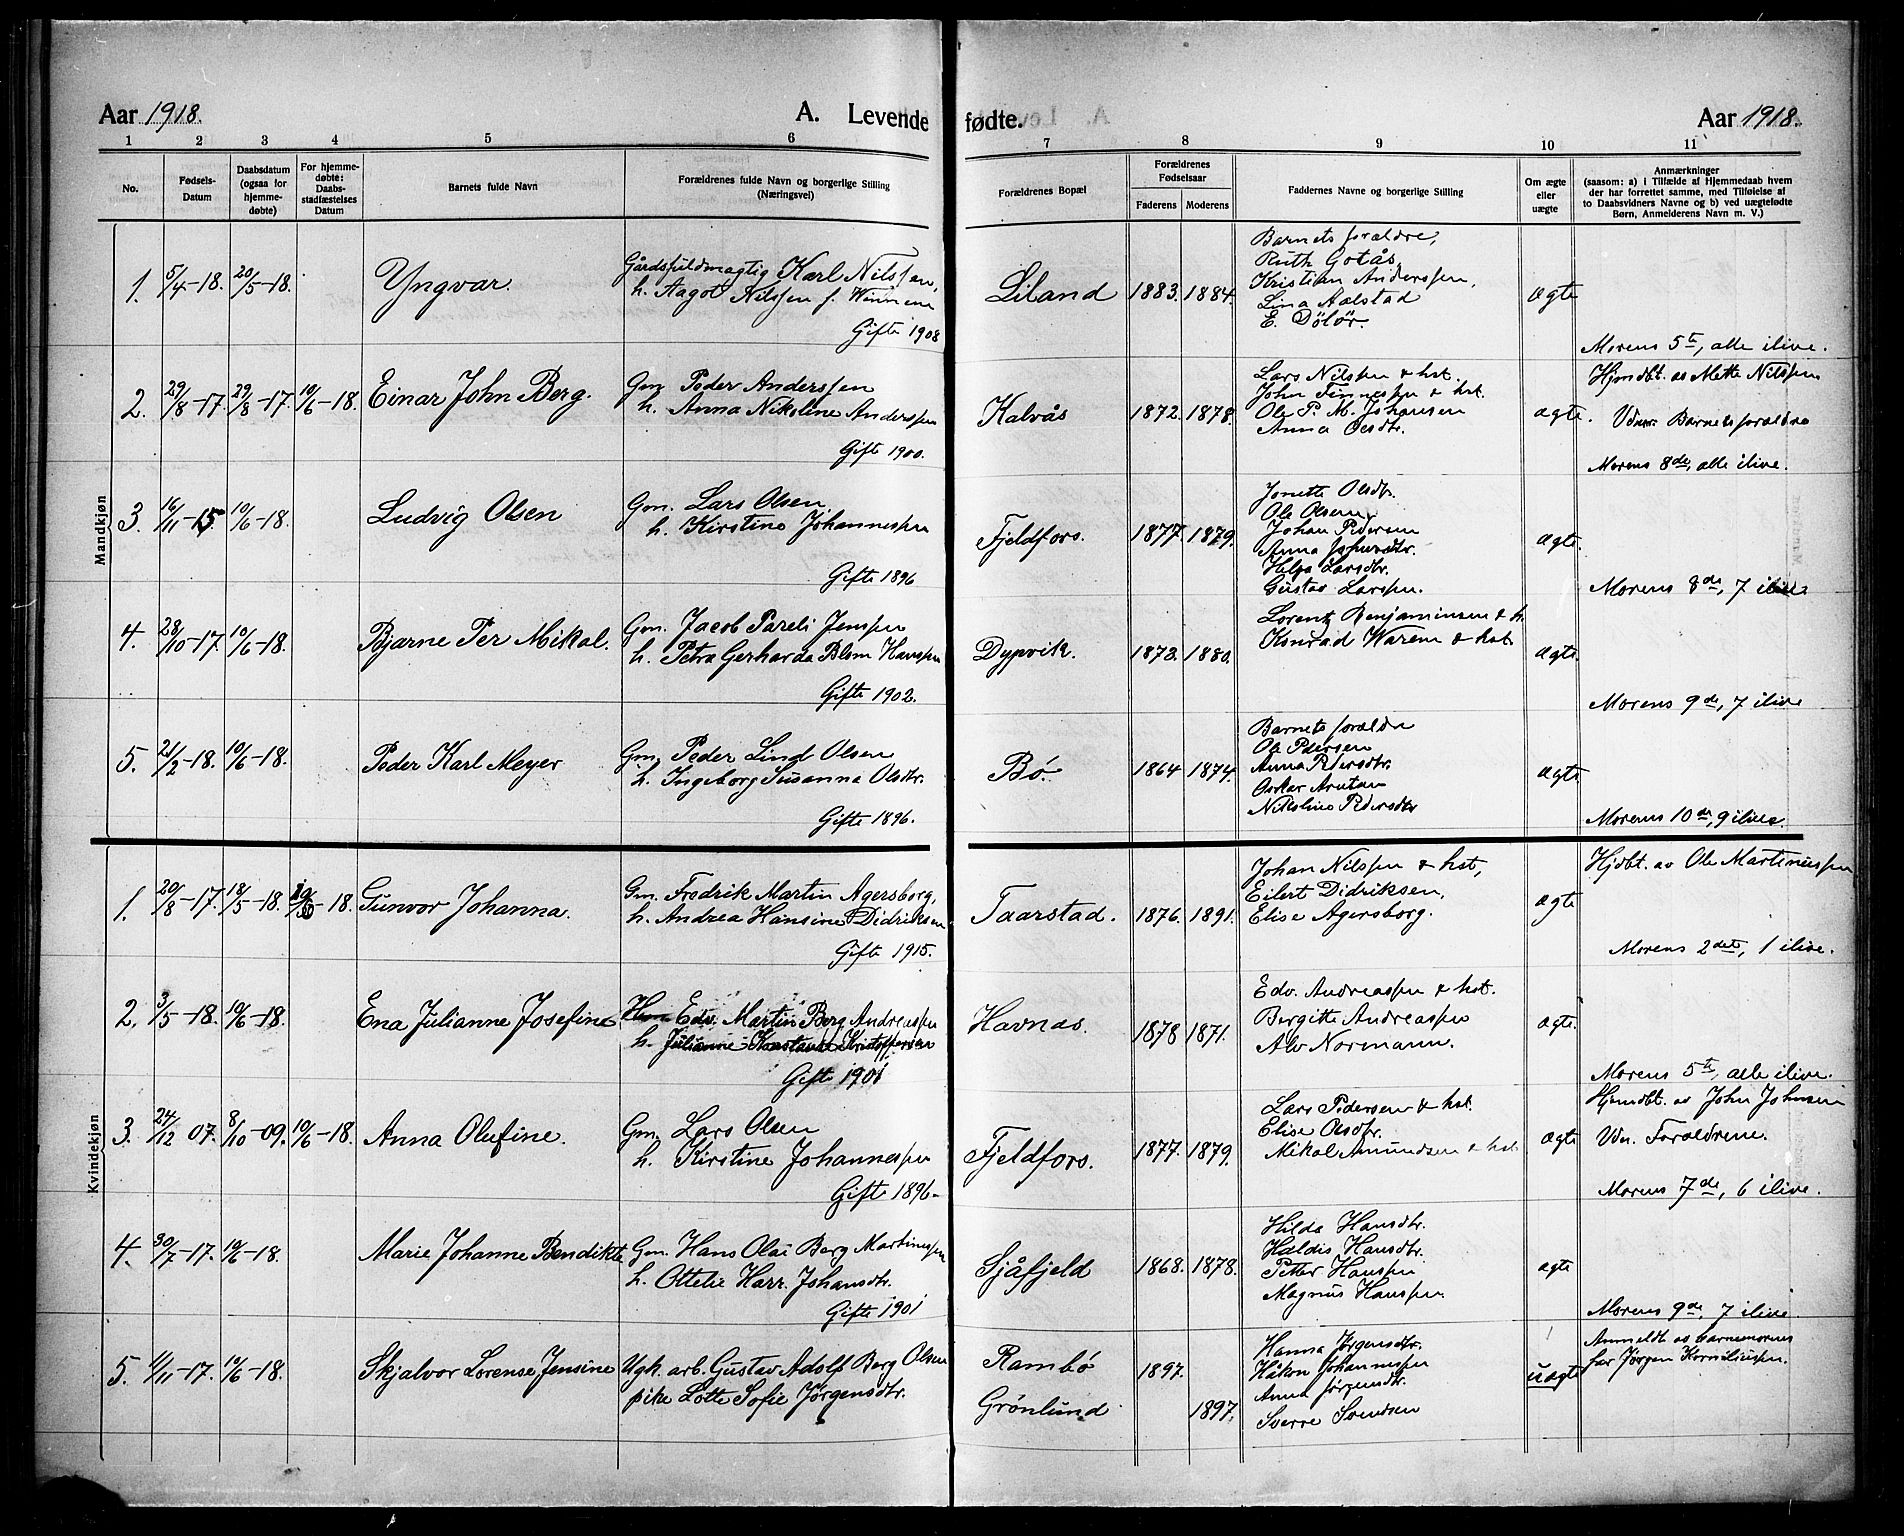 Aar 1918. A. Levende fødte. Aar 1918.
1 2 3 4 5 6 7 8 9 10 11
No. Fødsels-Datum Daabsdatum (ogsaa for hjemme-døbte) For hjemme-døbte: Daabs-stadfæstelses Datum Barnets fulde Navn Forældrenes fulde Navn og borgerlige Stilling (Næringsvei) Forældrenes Bopæl Forældrenes Fødselsaar Faderens Moderens Faddernes Navne og borgerlige Stilling Om ægte eller uægte Anmærkninger
(saasom: a) i Tilfælde af Hjemmedaab hvem
der har forrettet samme, med Tilføielse af
to Daabsvidners Navne og b) ved uægtefødte
Børn, Anmelderens Navn m. V.)
Mandkjøn
1. 5/4-18. 20/5-18. Yngvar. Gårdsfuldmægtig Karl Nilssen,
h. Aagot Nilssen f. Winnem
Gifte 1908
Liland 1883. 1884.
Barnets forældre,
Ruth Gotås,
Kristian Anderssen,
Lina Aalstad
E. Dölör.
ægte
Morens 5te, alle ilive.
2. 29/8-17. 29/8-17. 10/6-18. Einar John Berg. Gm. Peder Anderssen
h. Anna Nikoline Anderssen
Gifte 1900.
Kalvås 1872. 1878.
Lars Nilssen & hst.
John Finnessen & hst.
Ole P. M. Johansen
Anna Olsdtr.
ægte.
Hjmdbt. av Mette Nilssen
Vdner: Barnets forældre
Morens 8de, alle ilive.
3. 16/11-15 10/6-18. Ludvig Olsen Gm. Lars Olsen
h. Kirstine Johannessen
Gifte 1896
Fjeldfors. 1877. 1879.
Jonette Olsdtr.
Ole Olsen,
Johan Pedersen
Anna
Helga Larsdtr.
Gustav Larssen.
ægte.
Morens 8de, 7 ilive
4. 28/10-17. 10/6-18. Bjarne Per Mikal. Gm. Jacob Pareli Jenssen
h. Petra Gerharda Blom Hanssen
Gifte 1902.
Dypvik. 1873. 1880.
Lorentz Benjaminsen & h.
Konrad Warem & hst.
ægte.
Morens 9de, 7 ilive
5. 21/2-18. 10/6-18. Peder Karl Meyer Gm. Peder Lind Olsen
h. Ingeborg Susanna Olsdtr.
Gifte 1896.
Bø. 1864 1874.
Barnets forældre
Ole Pedersen
Anna Pedersdtr.
Oskar Arntsen
Nikoline Pedersdtr
ægte
Morens 10de, 9 ilive.
Kvindekjøn
1. 20/8-17. 18/5-18. 10/6-18. Gunvor Johanna. Gm. Fredrik Martin Agersborg,
h. Andrea Hansine Didriksen
Gifte 1915.
Taarstad. 1876. 1891.
Johan Nilssen & hst,
Eilert Didriksen,
Elise Agersborg.
ægte
Hjdbt. av Ole Martinussen
Morens 2det, 1 ilive.
2. 3/5-18. 10/6-18. Ena Julianne Josefine Edv. Martin Berg Andreassen
h. Julianne Konstanse Kristoffersen
Gifte 1901
Havnæs. 1878 1871.
Edv. Andreassen & hst.
Bergitte Andreassen
Alv Normann.
ægte.
Morens 5te, alle ilive.
3. 24/12 07. 8/10-09. 10/6-18. Anna Olufine. Gm. Lars Olsen
h. Kirstine Johannessen
Gifte 1896-
Fjeldfors. 1877. 1879.
Lars Pedersen & hst.
Elise Olsdtr.
Mikal Amundsen & hst
ægte
Hjmdbt. av John Johnsen
Vdn. Forældrene.
Morens 7de, 6 ilive.
4. 30/7-17. 10/6-18. Marie Johanne Bendikte Gm. Hans Olai Berg Martinessen
h. Ottelie Harr. Johansdtr.
Gifte 1901
Sjåfjeld 1868. 1878.
Hilda Hansdtr.
Haldis Hansdtr.
Petter Hanssen
Magnus Hanssen.
ægte
Morens 9de, 7 ilive.
5. 1/11-17. 10/6-18. Skjalvor Lorense Jensine Ugk. arb. Gustav Adolf Berg Olsen
pike Lotte Sofie Jørgensdtr.
Rambø 1897.
Grönlund 1897.
Hanna Jørgensdtr.
Håkon Johannessen
Anna Jørgensdtr.
Sverre Svendsen
uægte
Anmeldt av barnemorens
far Jørgen Korneliussen.